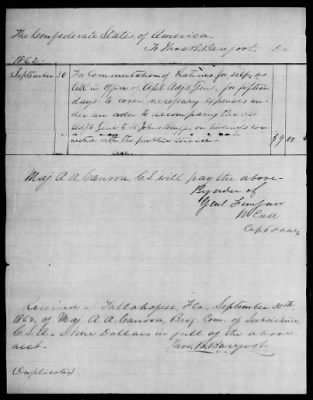 The Confederate States of America,
To Thos B. Barefoot, Dr
1862
September 30 For Commutation of Rations for self, as
Clk in Office of Asst Adjt Genl, for fifteen
days to cover necessary expenses un-
der an order to accompany the
Adjt Genl to St Johns Bluff, on business con-
nected with the public service— $9.00
Maj A. A. Canova, C.S. will pay the above—
By order of
Genl Finegan
W Call
Capt
Received at Tallahassee, Fla, September 30th
1862, of Maj A. A. Canova, Brig. Com. of Subsistence
C.S.A. Nine Dollars in full of the above
acct.
Thos. B. Barefoot
(Duplicates)